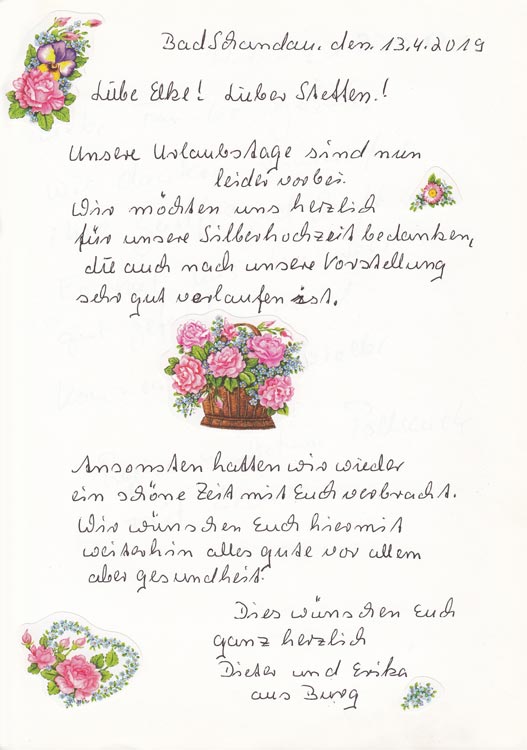 Bad Schandau. den. 13.4.2019
Liebe Elke! Lieber Steffen.!
Unsere Urlaubstage sind nun
leider vorbei.
Wir möchten uns herzlich
für unsere Silberhochzeit bedanken,
die auch nach unsere Vorstellung
sehr gut verlaufen ist.
Ansonsten hatten wir wieder
ein schöne Zeit mit Euch verbracht.
Wir wünschen Euch hiermit
weiterhin alles gute vor allem
aber gesundheit.
Dies wünschen Euch
ganz herzlich
Dieter und Erika
aus Burg